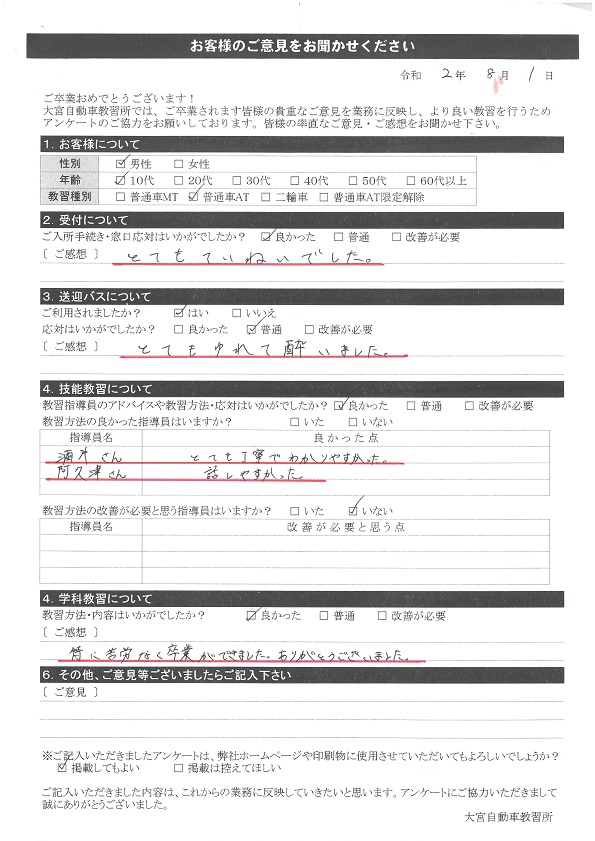 お客様のご意見をお聞かせください
令和 2 年 8 月 1 日
ご卒業おめでとうございます！
大宮自動車教習所では、ご卒業されます皆様の貴重なご意見を業務に反映し、より良い教習を行うため
アンケートのご協力をお願いしております。皆様の率直なご意見・ご感想をお聞かせ下さい。
1. お客様について
性別 ☑男性 □女性
年齢 ☑10代 □20代 □30代 □40代 □50代 □60代以上
教習種別 □普通車MT ☑普通車AT □二輪車 □普通車AT限定解除
2. 受付について
ご入所手続き・窓口応対はいかがでしたか？ ☑良かった □普通 □改善が必要
［ ご感想 ］ とてもていねいでした。
3. 送迎バスについて
ご利用されましたか？ ☑はい □いいえ
応対はいかがでしたか？ □良かった ☑普通 □改善が必要
［ ご感想 ］ とてもゆれて酔いました。
4. 技能教習について
教習指導員のアドバイスや教習方法・応対はいかがでしたか？ ☑良かった □普通 □改善が必要
教習方法の良かった指導員はいますか？ □いた □いない
指導員名 良かった点
酒井さん とても丁寧でわかりやすかった。
阿久津さん 話しやすかった。
教習方法の改善が必要と思う指導員はいますか？ □いた ☑いない
指導員名 改善が必要と思う点
4. 学科教習について
教習方法・内容はいかがでしたか？ ☑良かった □普通 □改善が必要
［ ご感想 ］
特に苦労なく卒業ができました。ありがとうございました。
6. その他、ご意見等ございましたらご記入下さい
［ ご意見 ］
※ご記入いただきましたアンケートは、弊社ホームページや印刷物に使用させていただいてもよろしいでしょうか？
☑掲載してもよい □掲載は控えてほしい
ご記入いただきました内容は、これからの業務に反映していきたいと思います。アンケートにご協力いただきまして
誠にありがとうございました。
大宮自動車教習所